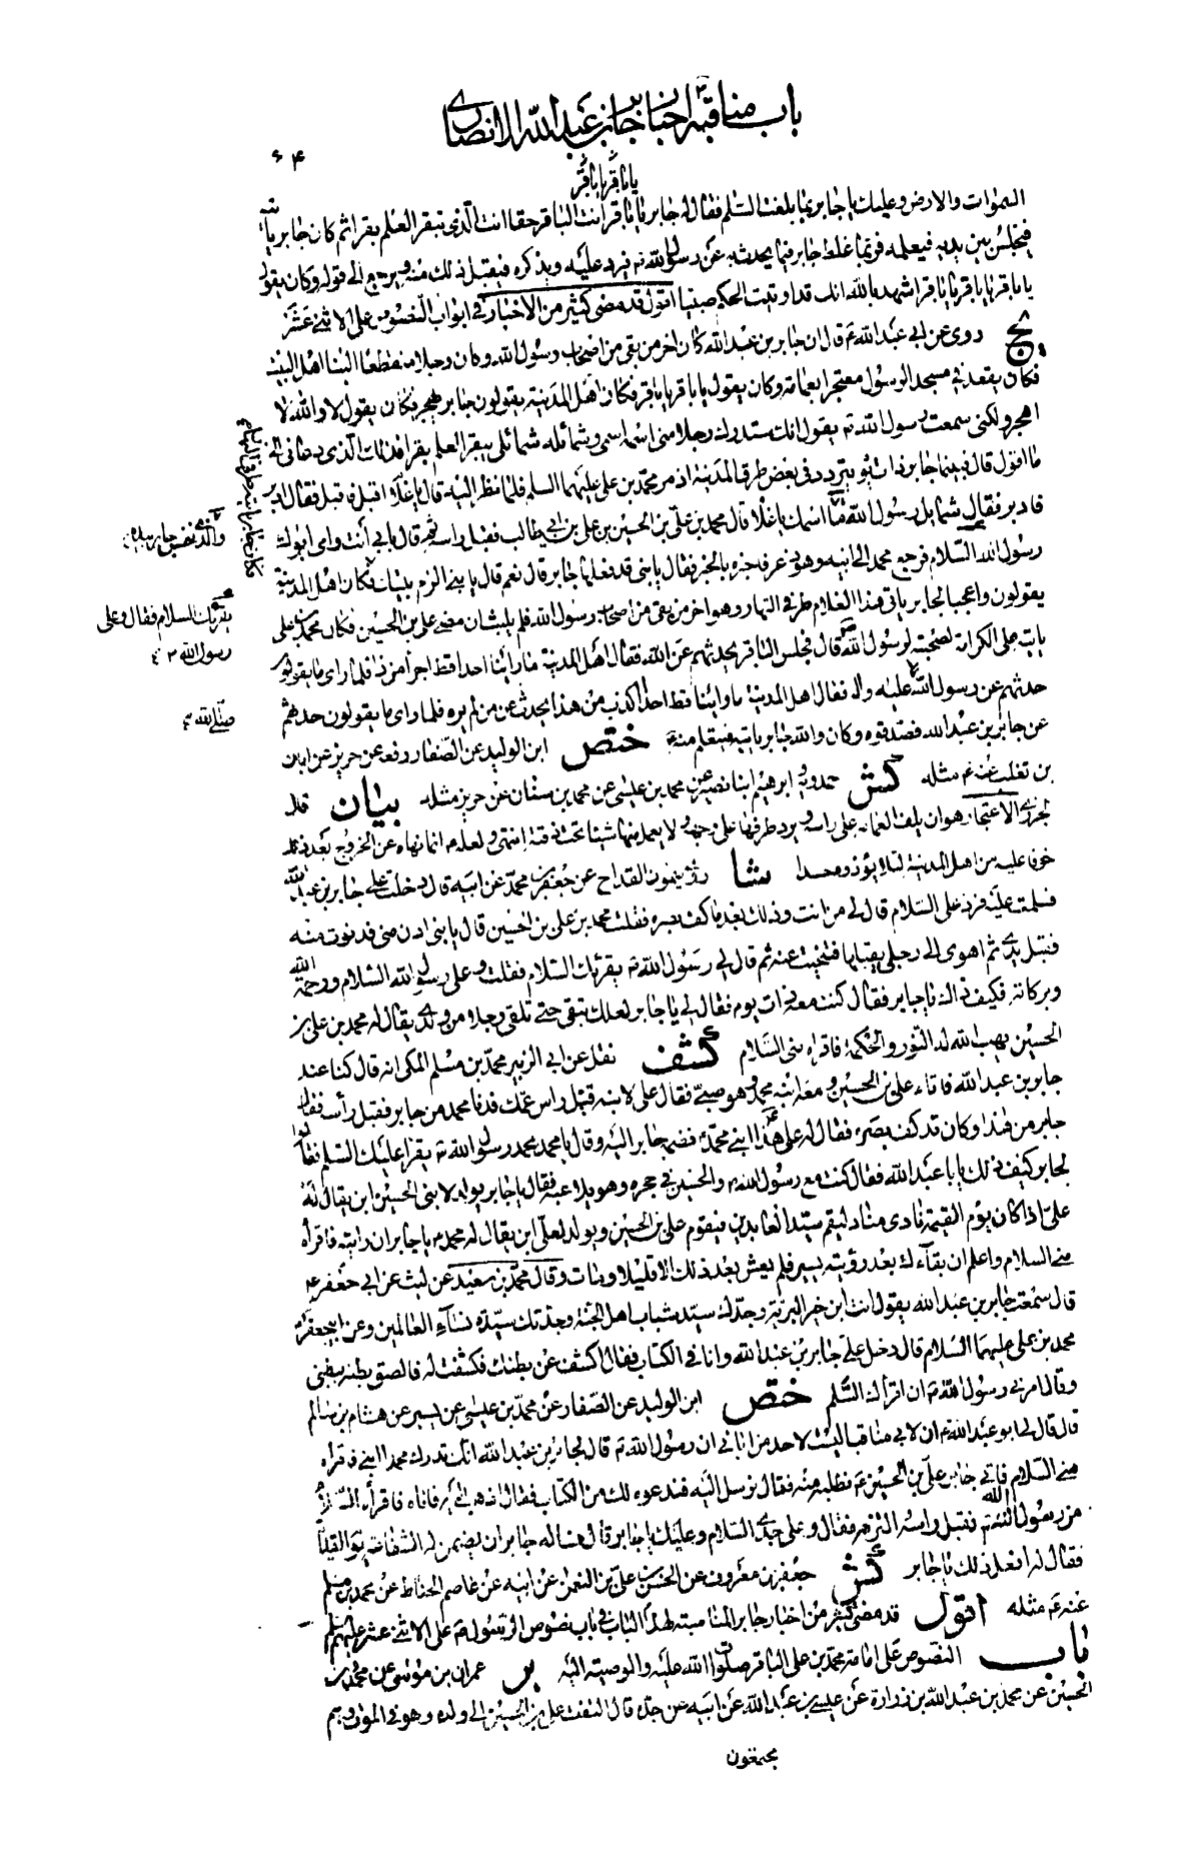 باب مناقبه واخبار جابر بن عبد الله الانصارى
۶۴
يا باقر يا باقر
السموات والارض وعليك يا جابر بما بلغت السلم فقال له جابر يا باقر انت الباقر حقا انت الذى تبقر العلم بقرا ثم كان جابر ياتيه
فيجلس بين يديه فيعلمه فربما غلط جابر فيما يحدث به عن رسول الله ص فيرد عليه ويذكره فيقبل ذلك منه ويرجع الى قوله وكان يقول
يا باقر يا باقر يا باقر اشهد بالله انك قد اوتيت الحكم صبيا اقول قد مضى كثير من الاخبار فى ابواب النصوص على الاثنى عشر
يج روى عن ابى عبد الله ع قال ان جابر بن عبد الله كان اخر من بقى من اصحاب رسول الله وكان رجلا منقطعا الينا اهل البيت
فكان يقعد فى مسجد الرسول معتجرا بعمامة وكان يقول يا باقر يا باقر فكان اهل المدينة يقولون جابر يهجر فكان يقول لا والله لا
اهجر ولكنى سمعت رسول الله ص يقول انك ستدرك رجلا منى اسمه اسمى وشمائله شمائلى يبقر العلم بقرا فذاك الذى دعانى الى
ما اقول قال فبينما جابر ذات يوم يتردد فى بعض طرق المدينة اذ مر محمد بن على عليهما السلم فلما نظر اليه قال يا غلام اقبل فاقبل فقال ادبر
فادبر فقال شمايل رسول الله ما اسمك يا غلام قال محمد بن على بن الحسين بن على بن ابى طالب فقبل راسه ثم قال بابى انت وامى ابوك
رسول الله السلام فرجع محمد الى ابيه وهو ذعر فاخبره بالخبر فقال يا بنى قد فعلها جابر قال نعم قال يا بنى الزم بيتك فكان اهل المدينة
يقولون واعجبا لجابر ياتى هذا الغلام طرفى النهار وهو اخر من بقى من اصحاب رسول الله فلم يلبث ان مضى على بن الحسين فكان محمد بن على
ياتيه على الكرامة لصحبته لرسول الله قال فجلس الباقر يحدثهم عن الله فقال اهل المدينة ما راينا احدا قط اجرأ من ذا فلما راى ما يقولون
حدثهم عن رسول الله عليه واله فقال اهل المدينة ما راينا قط احدا اكذب من هذا يحدث عن من لم يره فلما راى ما يقولون حدثهم
عن جابر بن عبد الله فصدقوه وكان والله جابر ياتيه فيتعلم منه ختص ابن الوليد عن الصفار رفعه عن حريز عن ابان
بن تغلب عنه ع مثله كش حمدويه وابرهيم ابنا نصير عن محمد بن عيسى عن محمد بن سنان عن حريز مثله بيان قال
الجزرى الاعتجار هو ان يلف العمامة على راسه ويرد طرفها على وجهه ولا يعمل منها شيئا تحت ذقنه انتهى ولعله ع انما نهاه عن الخروج بعد ذلك
خوفا عليه من اهل المدينة لئلا يؤذوه حسدا شا روى ميمون القداح عن جعفر بن محمد عن ابيه قال دخلت على جابر بن عبد الله
فسلمت عليه فرد على السلام قال لى من انت وذلك بعد ما كف بصره فقلت محمد بن على بن الحسين قال يا بنى ادن منى فدنوت منه
فقبل يدى ثم اهوى الى رجلى يقبلها فتنحيت عنه ثم قال لى رسول الله ص يقرئك السلام فقلت وعلى رسول الله السلام ورحمة الله
وبركاته فكيف ذاك يا جابر فقال كنت معه ذات يوم فقال لى يا جابر لعلك تبقى حتى تلقى رجلا من ولدى يقال له محمد بن على بن
الحسين يهب الله له النور والحكمة فاقراه منى السلام كشف نقل عن ابى الزبير محمد بن مسلم المكى انه قال كنا عند
جابر بن عبد الله فاتاه على بن الحسين ومعه ابنه محمد وهو صبى فقال على لابنه قبل راس عمك فدنا محمد من جابر فقبل رأسه فقال
جابر من هذا وكان قد كف بصره فقال له على هذا ابنى محمد فضمه جابر اليه وقال يا محمد محمد رسول الله ص يقرا عليك السلم فقالوا
لجابر كيف ذلك يا ابا عبد الله فقال كنت مع رسول الله ص والحسين فى حجره وهو يلاعبه فقال يا جابر يولد لابنى الحسين ابن يقال له
على اذا كان يوم القيمة نادى مناد ليقم سيد العابدين فيقوم على بن الحسين ويولد لعلى ابن يقال له محمد يا جابر ان رايته فاقرأه
منى السلام واعلم ان بقآءك بعد رؤيته يسير فلم يعش بعد ذلك الا قليلا ومات وقال محمد بن سعيد عن ليث عن ابى جعفر ع
قال سمعت جابر بن عبد الله يقول انت ابن خير البرية وجدك سيد شباب اهل الجنة وجدتك سيدة نسآء العالمين وعن ابى جعفر
محمد بن على عليهما السلام قال دخل على جابر بن عبد الله وانا فى الكتاب فقال اكشف عن بطنك فكشفت له فالصق بطنه ببطنى
وقال امرنى رسول الله ص ان اقرأك السلم ختص ابن الوليد عن الصفار عن محمد بن عيسى عن عن هشام بن سالم
قال قال لى ابو عبد الله ع ان لابى مناقب ليست لاحد من ابائى ان رسول الله ص قال لجابر بن عبد الله انك تدرك محمدا ابنى فاقرأه
منى السلام فاتى جابر على بن الحسين ع فطلبه منه فقال نرسل اليه فندعوه لك من الكتاب فقال اذهب اليه فاتاه فاقرأه السلام
من رسول الله ص وقبل راسه والتزمه فقال وعلى جدى السلام وعليك يا جابر قال فساله جابر ان يضمن له الشفاعة يوم القيمة
فقال له افعل ذلك يا جابر كش جعفر بن معروف عن الحسن بن على بن النعمان عن ابيه عن عاصم الحناط عن محمد بن مسلم
عنه ع مثله اقول قد مضى كثير من اخبار جابر المناسبة لهذا الباب فى باب نصوص الرسول ص على الاثنى عشر عليهم السلم
باب النصوص على امامة محمد بن على الباقر صلوات الله عليه والوصية اليه ير عمران بن موسى عن محمد بن
الحسين عن محمد بن عبد الله بن زرارة عن عيسى بن عبد الله عن ابيه عن جده قال التفت على بن الحسين الى ولده وهو فى الموت وهم
مجتمعون
فكان جابر ياتيه طرفى النهار
والذى نفس جابر بيده
يقرئك السلام فقال وعلى
رسول الله
صلى الله